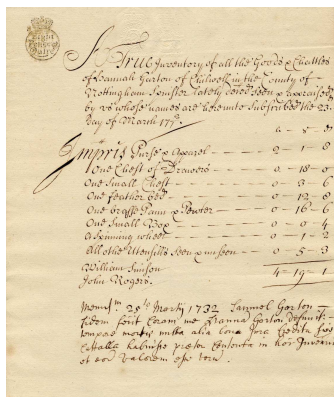 A True Inventory of all the Goods & Chattles
of Hannah Garton of Chilwell in the County of
Nottingham Spinster lately dec'ed seen & appraised
by us whose names are hereunto Subscribed the 23
Day of March
Imp'ris Purse & Apparel 2 - 1 - 8
One Chest of Drawers 0 - 18 - 0
One Small Chest 0 - 3 - 6
One feather bed 0 - 12 - 8
One brasse Pann & Pewter 0 - 16 - 6
One Small Box 0 - 0 - 4
A Spinning wheel 0 - 1 - 2
All othe Utensills Seen & unseen 0 - 5 - 3
William
John Rogers. 4 - 19 - 1
25to Martij 1732 Samuel Gorton
fidem fecit Coram me Hanna Gorton
tempore mortis alia bona Jura Credita sive
Cattalla habuisse
et eor valorem esse vera.